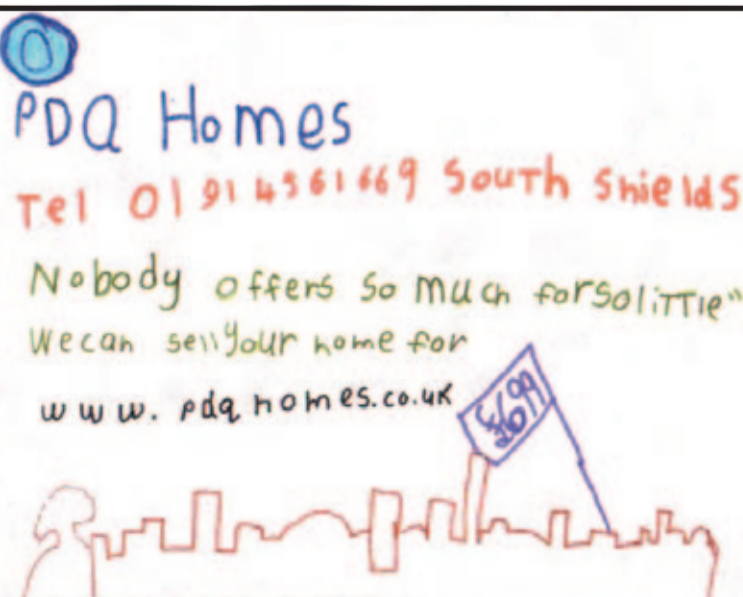 PDQ Homes
Tel 0191 4561669 South Shields
Nobody offers so much for so little"
We can sell your home for
£699
www.pdqhomes.co.uk